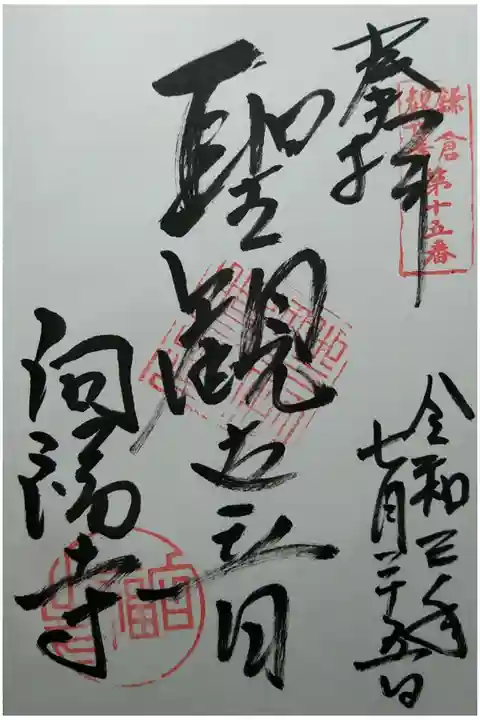 奉拝
鎌倉
第十五番
聖観世音
向福寺
令和三年
七月二十五日